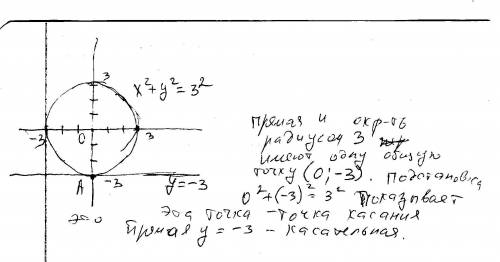 3
x²+y²=3²
-3
0
3
A
-3
y=-3
прямая и окр-ть
радиусом 3
имеют одну общую
точку (0;-3). Подстановка
0²+(-3)²=3² показывает
эта точка - точка касания
Прямая y = -3 - касательная.